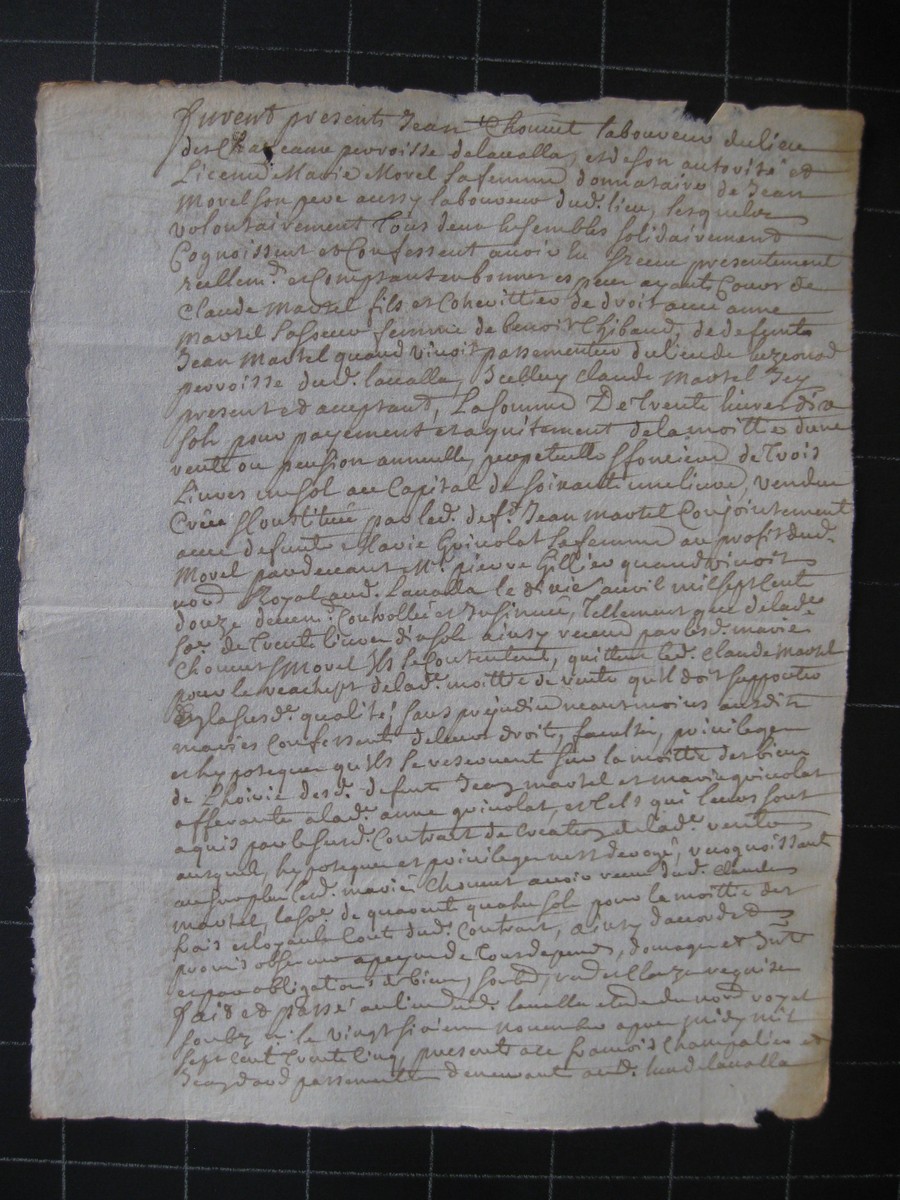 furent presents Jean Chomet laboureur du lieu
des perroisse de lavalla, et de son autorité et
Licence Marie Morel sa femme donnataire de Jean
Morel son pere aussy laboureur dud. lieu, lesquels
volontairement tous deux solidairement
Cognoissent et Confessent avoir eu et Receu presentement
reellemt. et Comptant en bonnes especes ayant Cours de
Claude Martel fils et Coheritier de droit avec anne
Martel sa soeur femme de benoit Thibaud, de defunt
Jean Martel quand vivoit passementier du lieu de
perroisse dud. lavalla, Icelluy Claude Martel Icy
present et acceptant, La somme De trente livres dix
sols pour payement et aquitement de la moitié d'une
rente ou pension annuelle, perpetuelle & fonciere de trois
Livres un sol au Capital de soixante une livres, vendue
Créée & Constituée par led. deft. Jean Martel Conjointement
avec defunte Marie Guicolat sa femme au profit dud.
Morel pardevant Me. pierre Gillier quand vivoit
nore. Royal aud. Lavalla le avril mil sept Cent
douze Controllé et Insinué, Tellement que de lade.
soe. de Trente livres dix sols ainsy receue par lesd. mariés
Chomet & Morel Ils se Contentent, quittent led. Claude Martel
pour le reachept de lade. moitié de rente qu'il doit supporter
en la susde. qualité, sans prejudice neantmoins ausdits
mariés Confessants de leurs droit, faculté, privileges
et hypoteques qu'ils se reservent sur la moitié des biens
de L'hoirie desd. defunts Jean Martel et marie guicolat
afferante a lade. anne guicolat, et tels qui leurs sont
aquis par le susd. Contrat de creation de lade. rente
auxquels hypoteques et privileges n'est derogé, recognoissant
au surplus lesd. mariés Chomet avoir receu dud. Claude
martel, la soe. de quarente quatre sols pour la moitié des
frais et loyaule Cout dud. Contrat, ainsy d'accord &
promis observer a peyne de tous depends, domages et Intts.
et par obligations de biens, soubms., render. Clauses requises
fait et passé au lieu dud. lavalla etude du nore. royal
soubzné le vingt sixieme novembre apres midy mil
sept Cent trente Cinq, presents a ce françois Champalier et
Jean passementier demeurant aud. lieu de lavalla